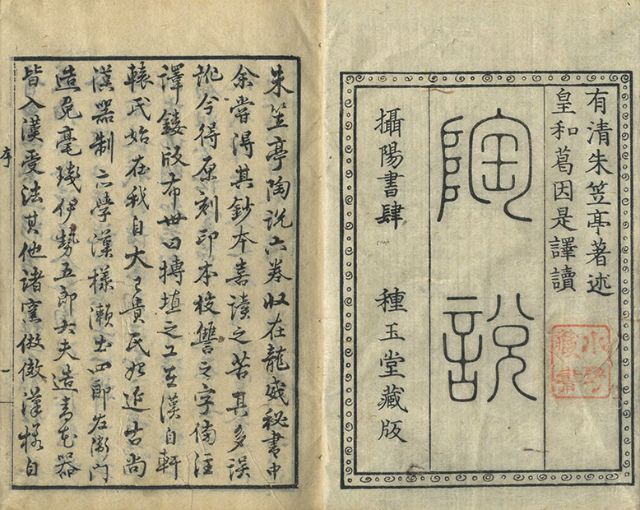 有清朱笠亭著述
皇和葛因是譯讀
陶說
攝陽書肆 種玉堂藏版
朱笠亭陶説六卷収在龍威秘書中
余嘗得其鈔本喜讀之苦其多誤
訛今得原刻印本校讐之字傍注
譯鏤版布世曰摶埴之工在漢自軒
轅氏始在我自大己貴氏始近古尚
漢器制亦學漢樣瀬土四郎左衛門
造兔毫琖伊勢五郎太夫造青花器
皆入漢受法其他諸窯倣傚漢様自
序
一